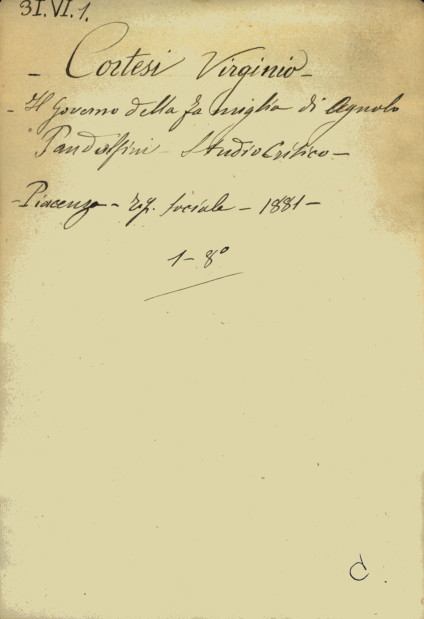 31.VI.1.
- Cortesi Virginio -
- Il Governo della famiglia di Agnolo
Pandolfini - Studio Critico -
- Piacenza - Tip. Sociale - 1881 -
1 - 8º
C